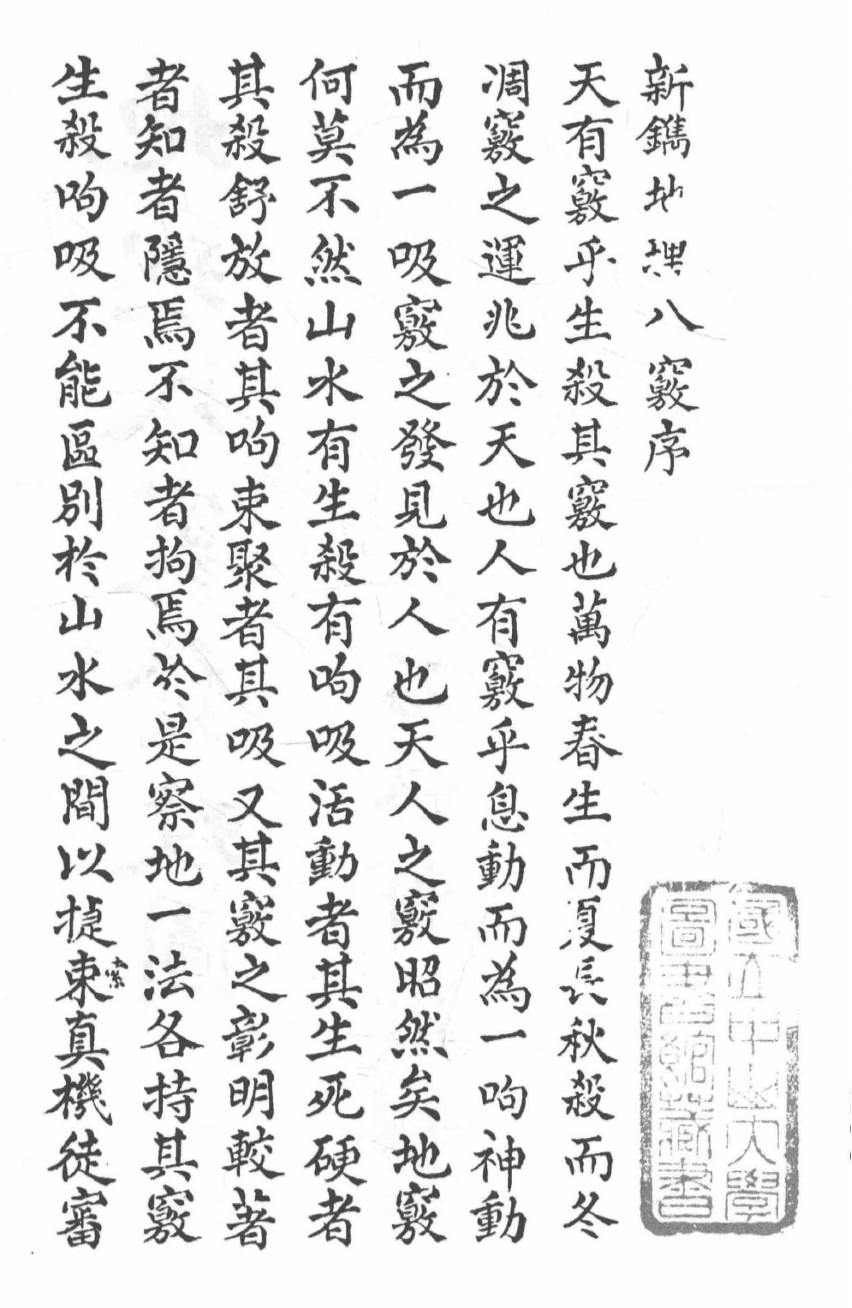 新鐫地理八竅序
天有竅乎生殺其竅也萬物春生而夏長秋殺而冬
凋竅之運兆於天也人有竅乎息動而為一呴神動
而為一吸竅之發見於人也天人之竅昭然矣地竅
何莫不然山水有生殺有呴吸活動者其生死硬者
其殺舒放者其呴束聚者其吸又其竅之彰明較著
者知者隱焉不知者拘焉於是察地一法各持其竅
生殺呴吸不能區別於山水之間以捷束真機徒審
國立中山大學
圖書館藏書